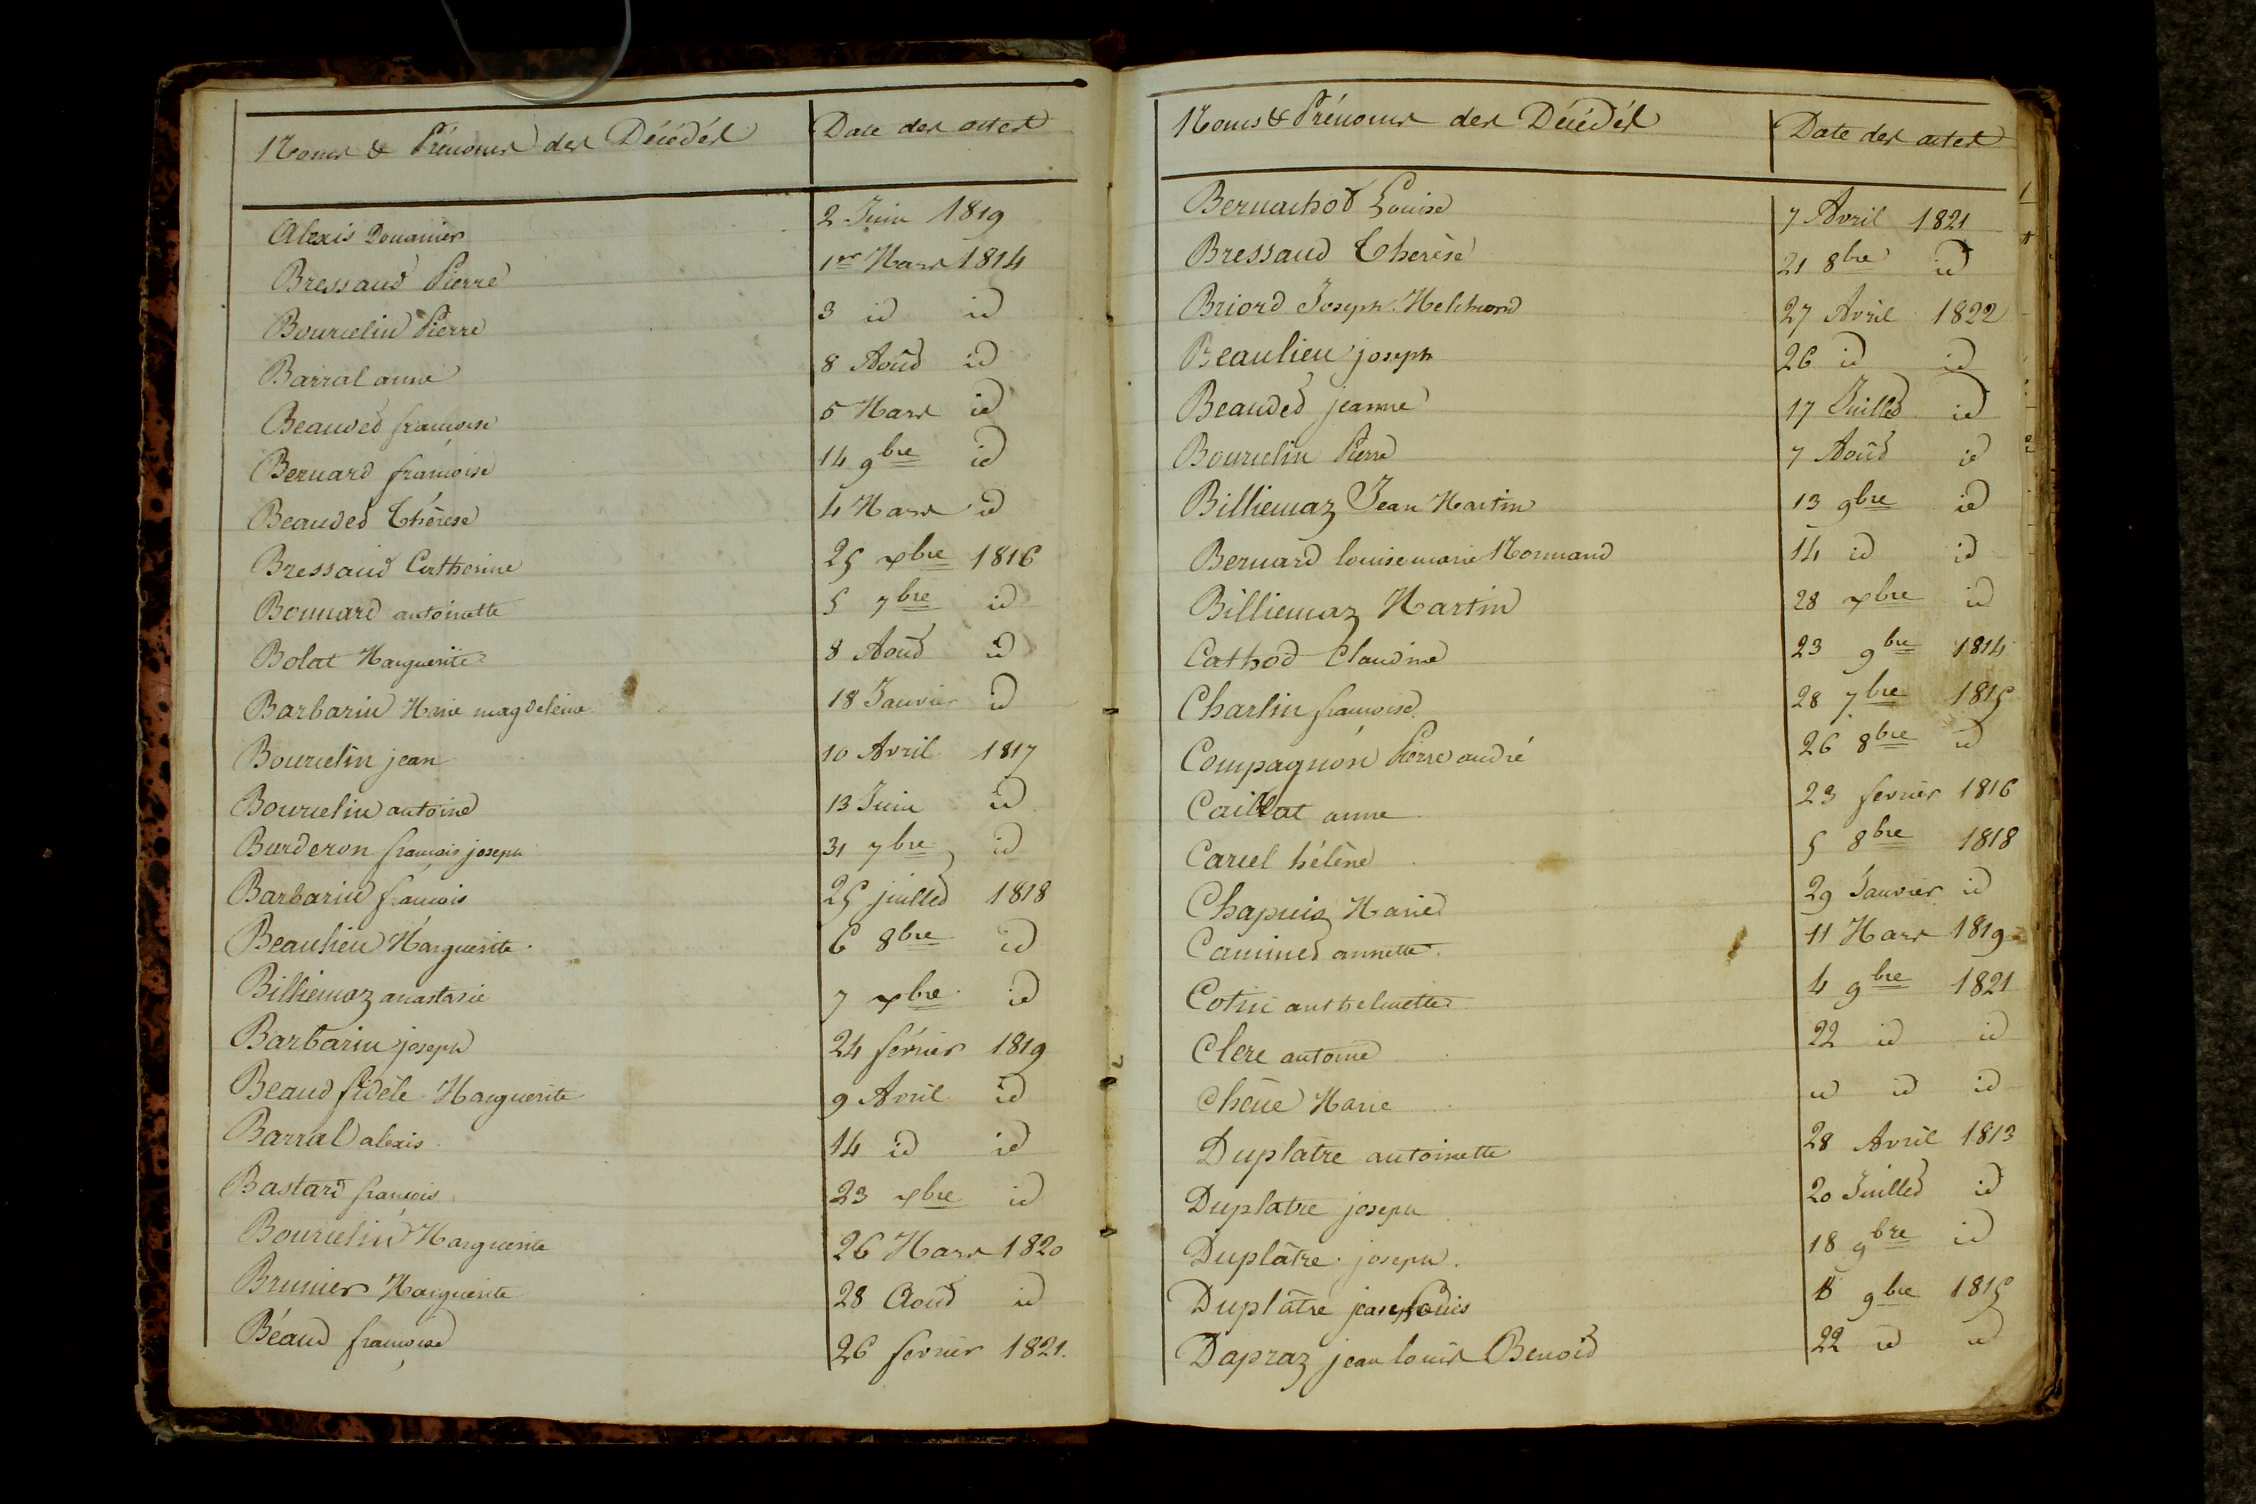 Noms & Prénoms des Décédés Date des actes
Alexis Douanier 2 Juin 1819
Bressaud Pierre 1er Mars 1814
Bourcelin Pierre 3 id id
Barral anne 8 Août id
Beaudet françoise 5 Mars id
Bernard françoise 14 9bre id
Beaudet Thérèse 4 Mars id
Bressaud Catherine 25 xbre 1816
Bonnard antoinette 5 7bre id
Bolat Marguerite 8 Août id
Barbarin Marie magdeleine 18 Janvier id
Bourcelin jean 10 Avril 1817
Bourcelin antoine 13 Juin id
Burderon françois joseph 31 7bre id
Barbarin françois 25 juillet 1818
Beaulieu Marguerite 6 8bre id
Billiemaz anastasie 7 xbre id
Barbarin joseph 24 février 1819
Beaud fidèle Marguerite 9 Avril id
Barral alexis 14 id id
Bastard françois 23 xbre id
Bourcelin Marguerite 26 Mars 1820
Brunier Marguerite 28 Août id
Béaud françoise 26 fevrier 1821.
Noms & Prénoms des Décédés Date des actes
Bernachot Louise 7 Avril 1821
Bressaud Therèse 21 8bre id
Briord Joseph Melchiord 27 Avril 1822
Beaulieu joseph 26 id id
Beaudet jeanne 17 Juillet id
Bourcelin Pierre 7 Août id
Billiemaz Jean Martin 13 9bre id
Bernard louise marie Normand 14 id id
Billiemaz Martin 28 xbre id
Cathod Claudine 23 9bre 1814
Charlin françoise 28 7bre 1815
Compagnon Pierre andré 26 8bre id
Caillat anne 23 fevrier 1816
Carcel hélène 5 8bre 1818
Chapuis Marie 29 Janvier id
Caminet annette 11 Mars 1819
Cotin anthelmette 4 9bre 1821
Clere antoine 22 id id
Chêne Marie id id id
Duplatre antoinette 28 Avril 1813
Duplatre joseph 20 Juillet id
Duplâtre joseph. 18 9bre id
Duplâtre jean Louis 9bre 1815
Dapraz jean louis Benoid 22 id id